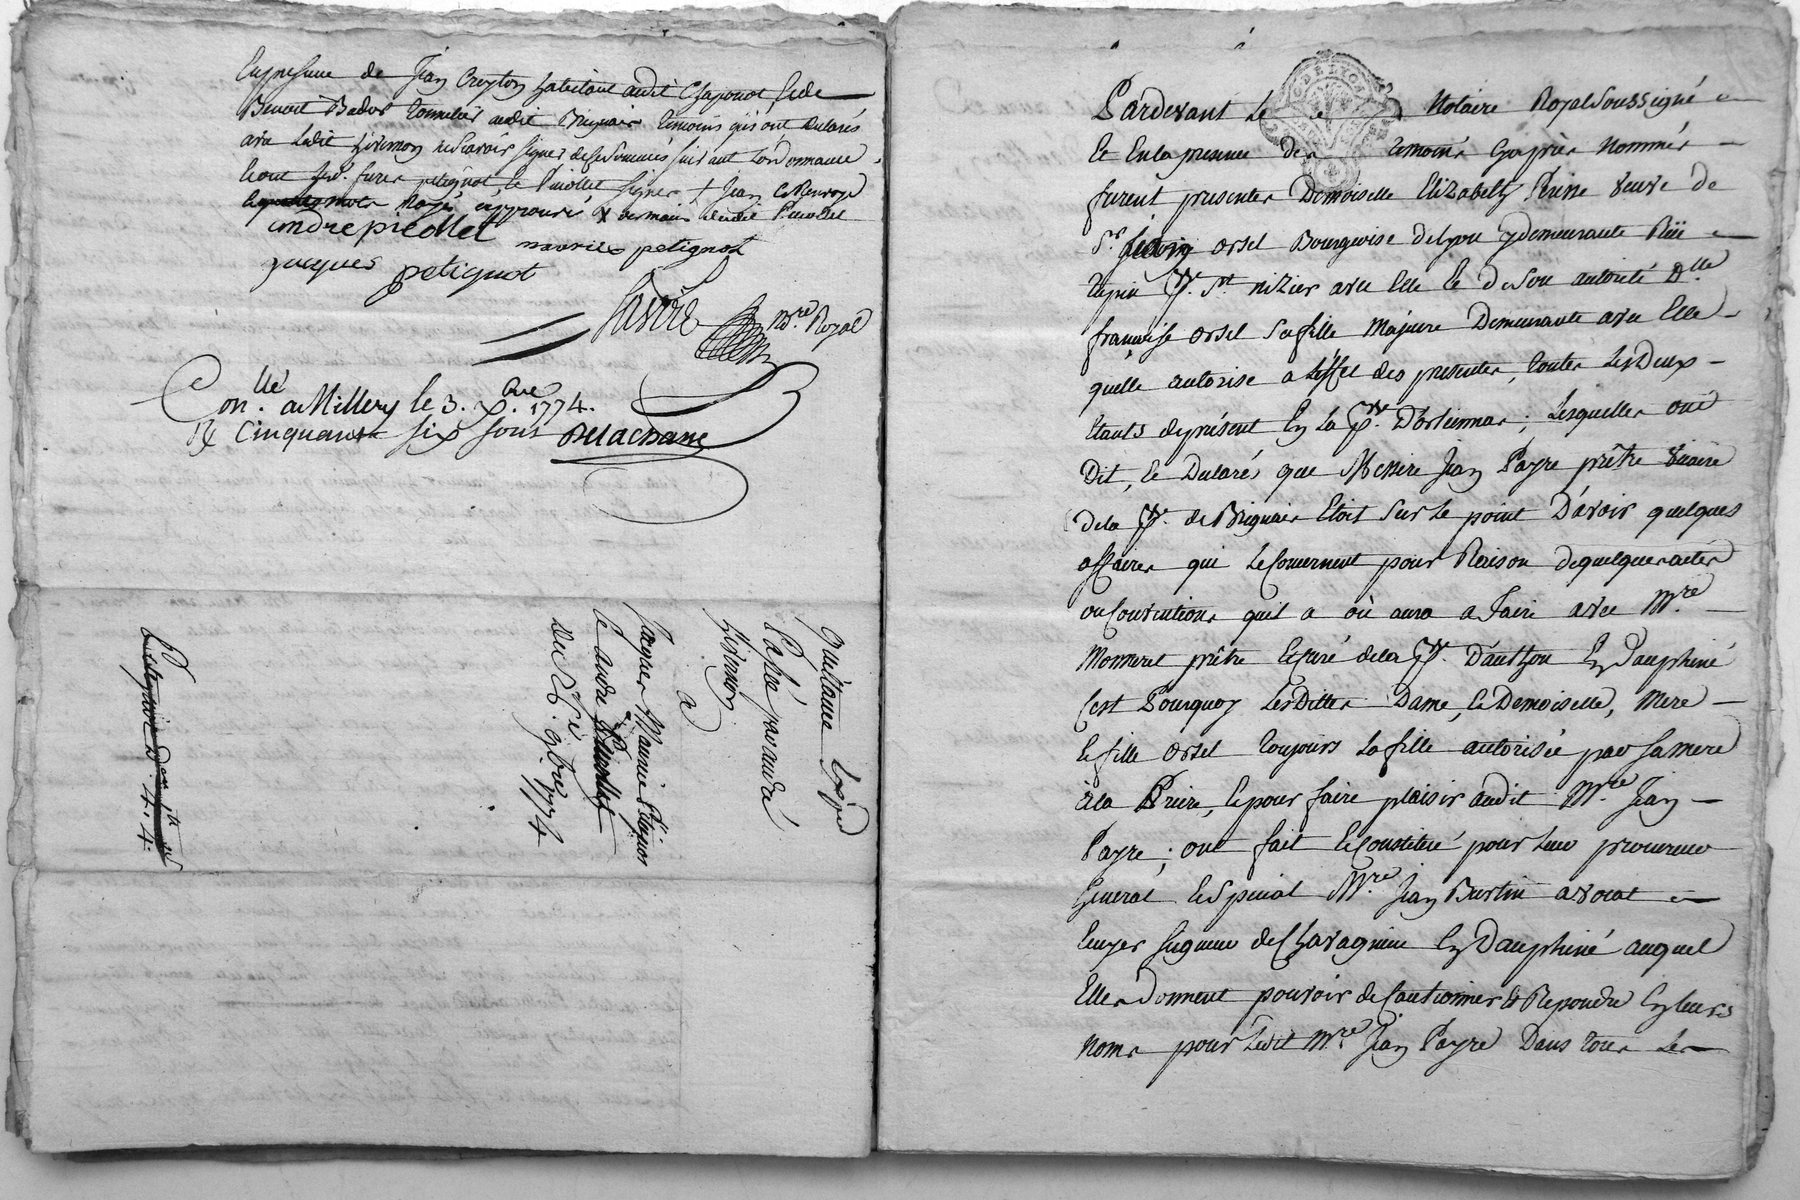 En presence de Jean Creyton habitant audit Chaponot, et de
Benoit Bador tonnelier audit Brignais temoins qui ont declarés
avec ledit Livernon ne scavoir signer de ce sommés suivant l'ordonnance
et ont lesd. freres petignot, et Picollet signés + Jean
Rayés approuvé X
andre picollet
maurice petignot
jacques petignot
Nre. Royal
Conllé. a Millery le 3. Xbre. 1774.
R cinquante six sous Delachana
Quittance
a
Jacques Maurice Petignot
et andre Picollet
du 9bre 1774
GEN. DE LYON
Pardevant Le Notaire Royal Soussigné
Et En la presence des temoins Cy après Nommés
furent presentes Demoiselle Elizabeth Perine veuve de
Sr. orsel Bourgeoise de Lyon y demeurante Rüe
tupin psse. St. nizier avec Elle Et de son autorité Dlle
françoise orsel sa fille Majeure Demeurante avec Elle
quelle autorise a L'effet des presentes, toutes Les Deux
Etants de présent En la psse. D'orliennas; Lesquelles ont
Dit, Et Declarés que Messire Jean Payre prêtre vicaire
de la psse. de Brignais Etoit sur le point D'avoir quelques
affaires qui Le Concernent pour Raison de quelques actes
ou Conventions quil a où aura a faire avec Mre.
Monneret prêtre Et curé de la psse. D'authon En Dauphiné
C'est Pourquoy Les Dittes Dame, Et Demoiselle, Mere
Et fille orsel toujours La fille autorisée par sa mere
à la Priere, Et pour faire plaisir audit Mre. Jean
Payre; ont fait Et Constitué pour Leur procureur
General Et special Mre. Jean Burtin avocat
Ecuyer seigneur de Charagnieu En Dauphiné auquel
Elles Donnent pouvoir de Cautionner Et Repondre En leurs
Noms pour Ledit Mre. Jean Payre Dans tous Les